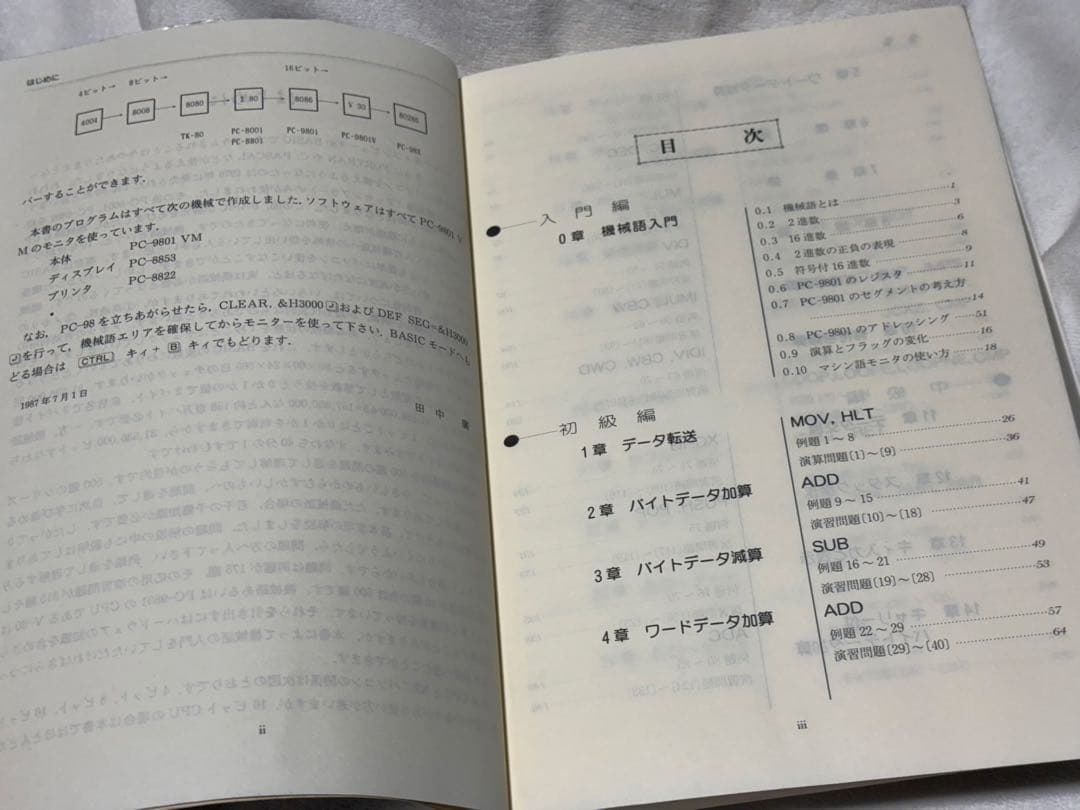 はじめに
4ビット→ 8ビット→ 16ビット→
4004 8008 8080 Z 80 8086 V 30 80286
TK-80 PC-8001 PC-9801 PC-9801V PC-98X
PC-8801
バーすることができます.
本書のプログラムはすべて次の機械で作成しました.ソフトウェアはすべてPC-9801 V
Mのモニタを使っています.
本体 PC-9801 VM
ディスプレイ PC-8853
プリンタ PC-8822
なお, PC-98を立ちあがらせたら, CLEAR, &H3000およびDEF SEG=&H3000
を行って, 機械語エリアを確保してからモニターを使って下さい. BASICモードへも
どる場合は CTRL キィ+ B キィでもどります.
1987年7月1日
田中
ii
目次
入門編
0章 機械語入門
0.1 機械語とは 1
0.2 2進数 3
0.3 16進数 6
0.4 2進数の正負の表現 8
0.5 符号付16進数 9
0.6 PC-9801のレジスタ 11
0.7 PC-9801のセグメントの考え方
14
0.8 PC-9801のアドレッシング 51
0.9 演算とフラッグの変化 16
0.10 マシン語モニタの使い方 18
初級編
1章 データ転送
MOV, HLT
例題1〜8 26
演算問題[1]〜[9] 36
2章 バイトデータ加算
ADD
例題9〜15 41
演習問題[10]〜[18] 47
3章 バイトデータ減算
SUB
例題16〜21 49
演習問題[19]〜[28] 53
4章 ワードデータ加算
ADD
例題22〜29 57
演習問題[29]〜[40] 64
iii